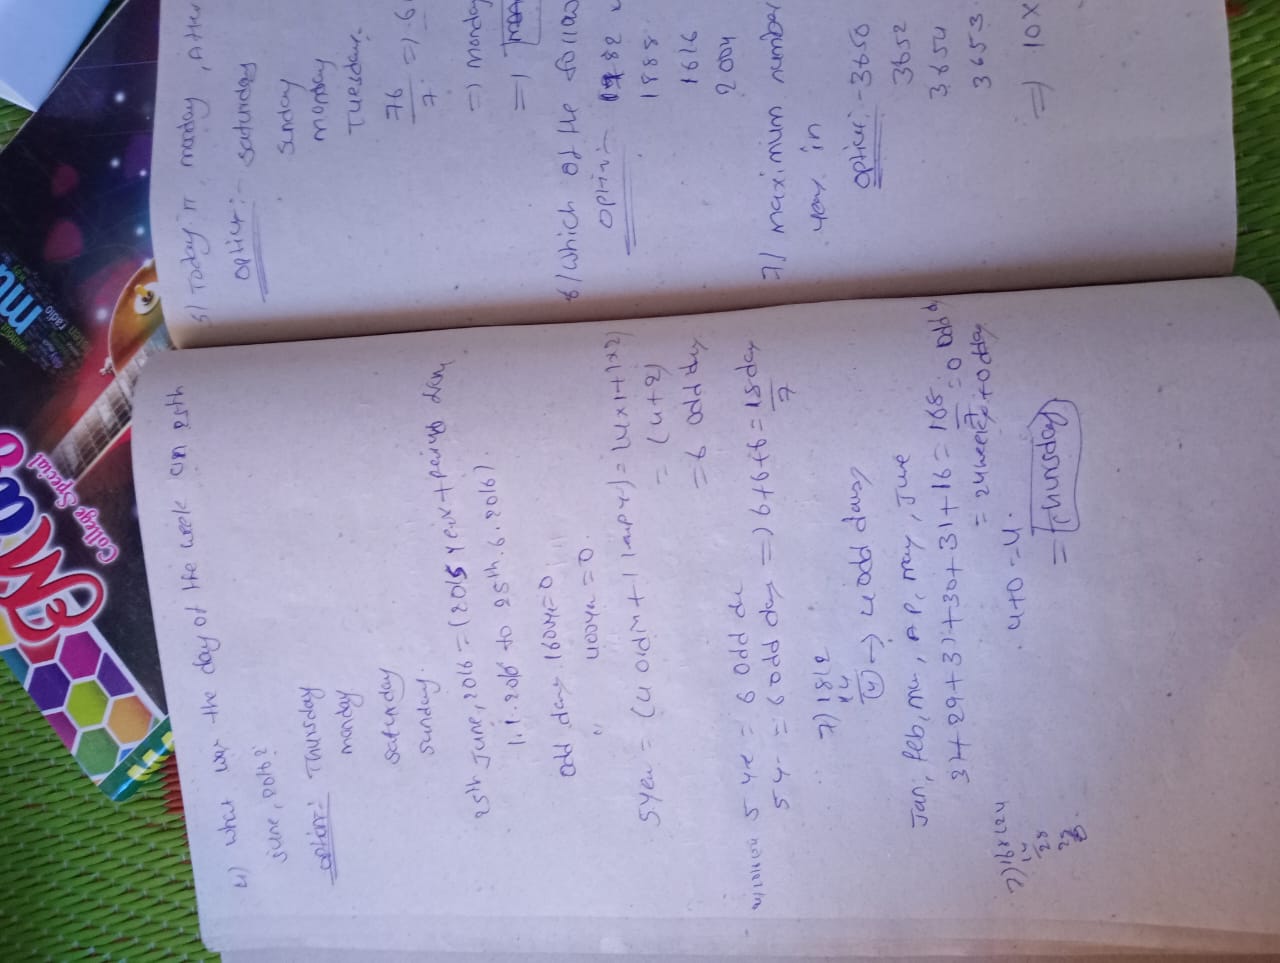 4) what was the day of the week on 25th
June, 2016?
option:- Thursday
monday
saturday
sunday.
25th June, 2016 = (2015 year + period
1.1.2016 to 25th.6.2016).
odd day 1600yr=0
" 400yr=0.
5year = (4 ordin + 1 leap yr) = (4x1+1x2)
= (4+2)
=6 odd day
5 yr = 6 odd
5 y- = 6 odd day => 6+6+6 = 18 day
7
7) 18 (2
14
(4) → 4 odd days
Jan, feb, mar, AP, may, June
31+29+31+30+31+16 = 168
7 = 0 odd d
= 24 week + 0 day
7)168(24
14
28
28
0.
4+0=4.
= Thursday
5) Today is monday, After
option:- saturday
sunday
monday
Tuesday.
76
7 =) 6
=) monday
=)
6) which of the follow
option:- 82
1888
1616
2004
7) maximum number
year in
option:- 3650
3652
3654
3653.
=) 10x
College Special
mu